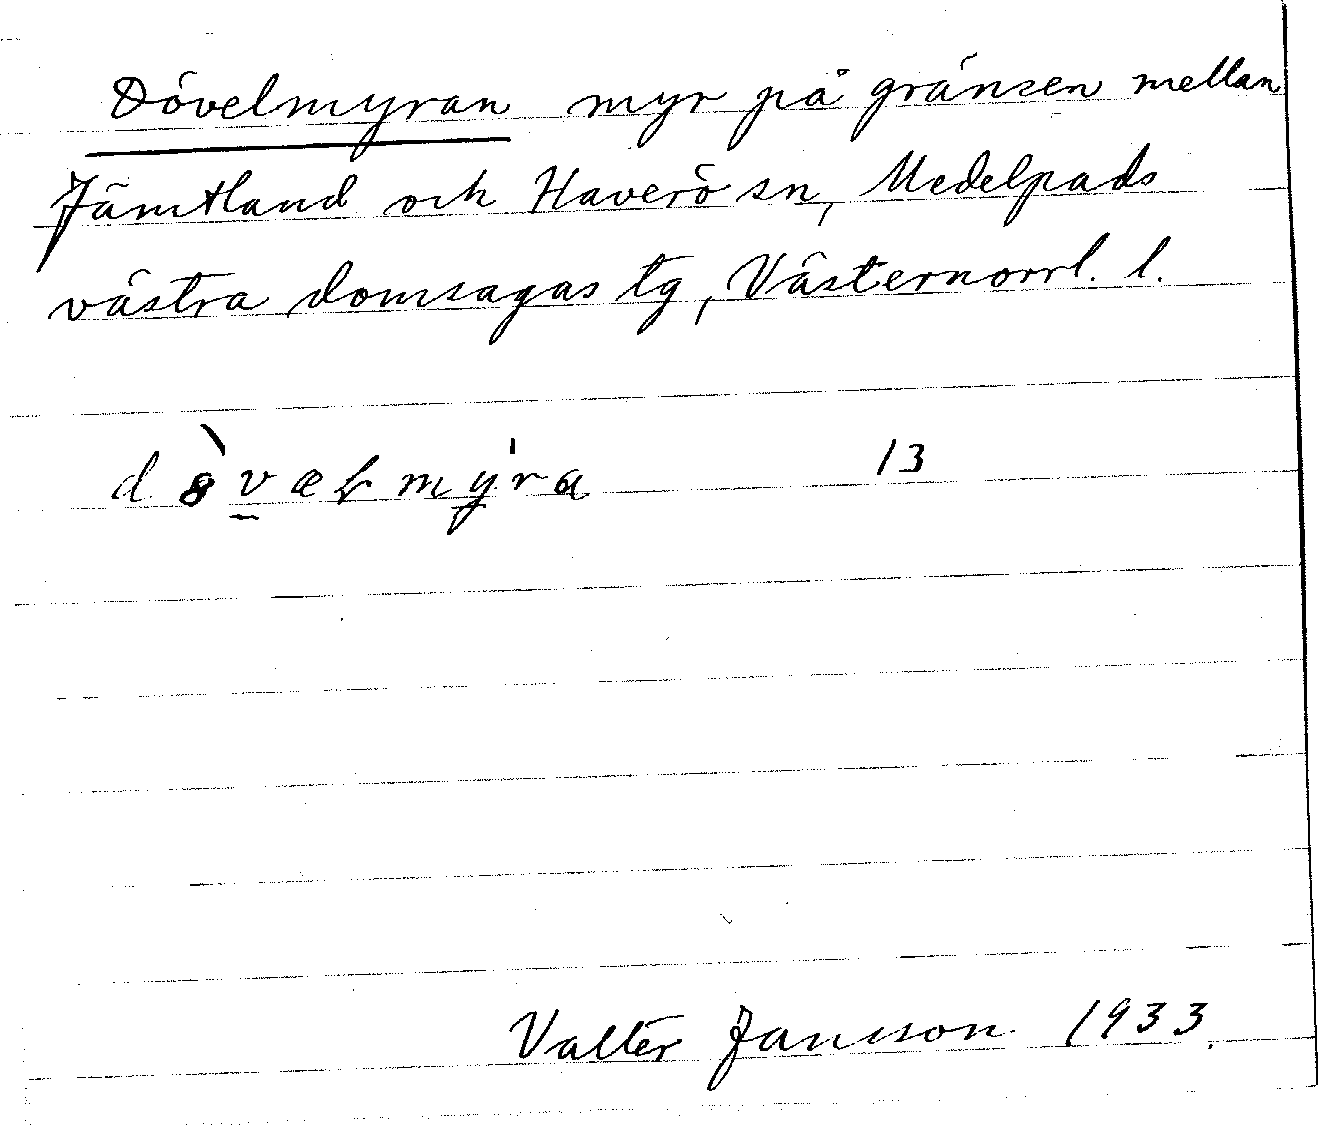 Dövelmyran myr på gränsen mellan
Jämtland och Haverö sn, Medelpads
västra domsagas tg, Västernorrl. l.
d8̀væłmy̍ra 13
Valter Jansson 1933.